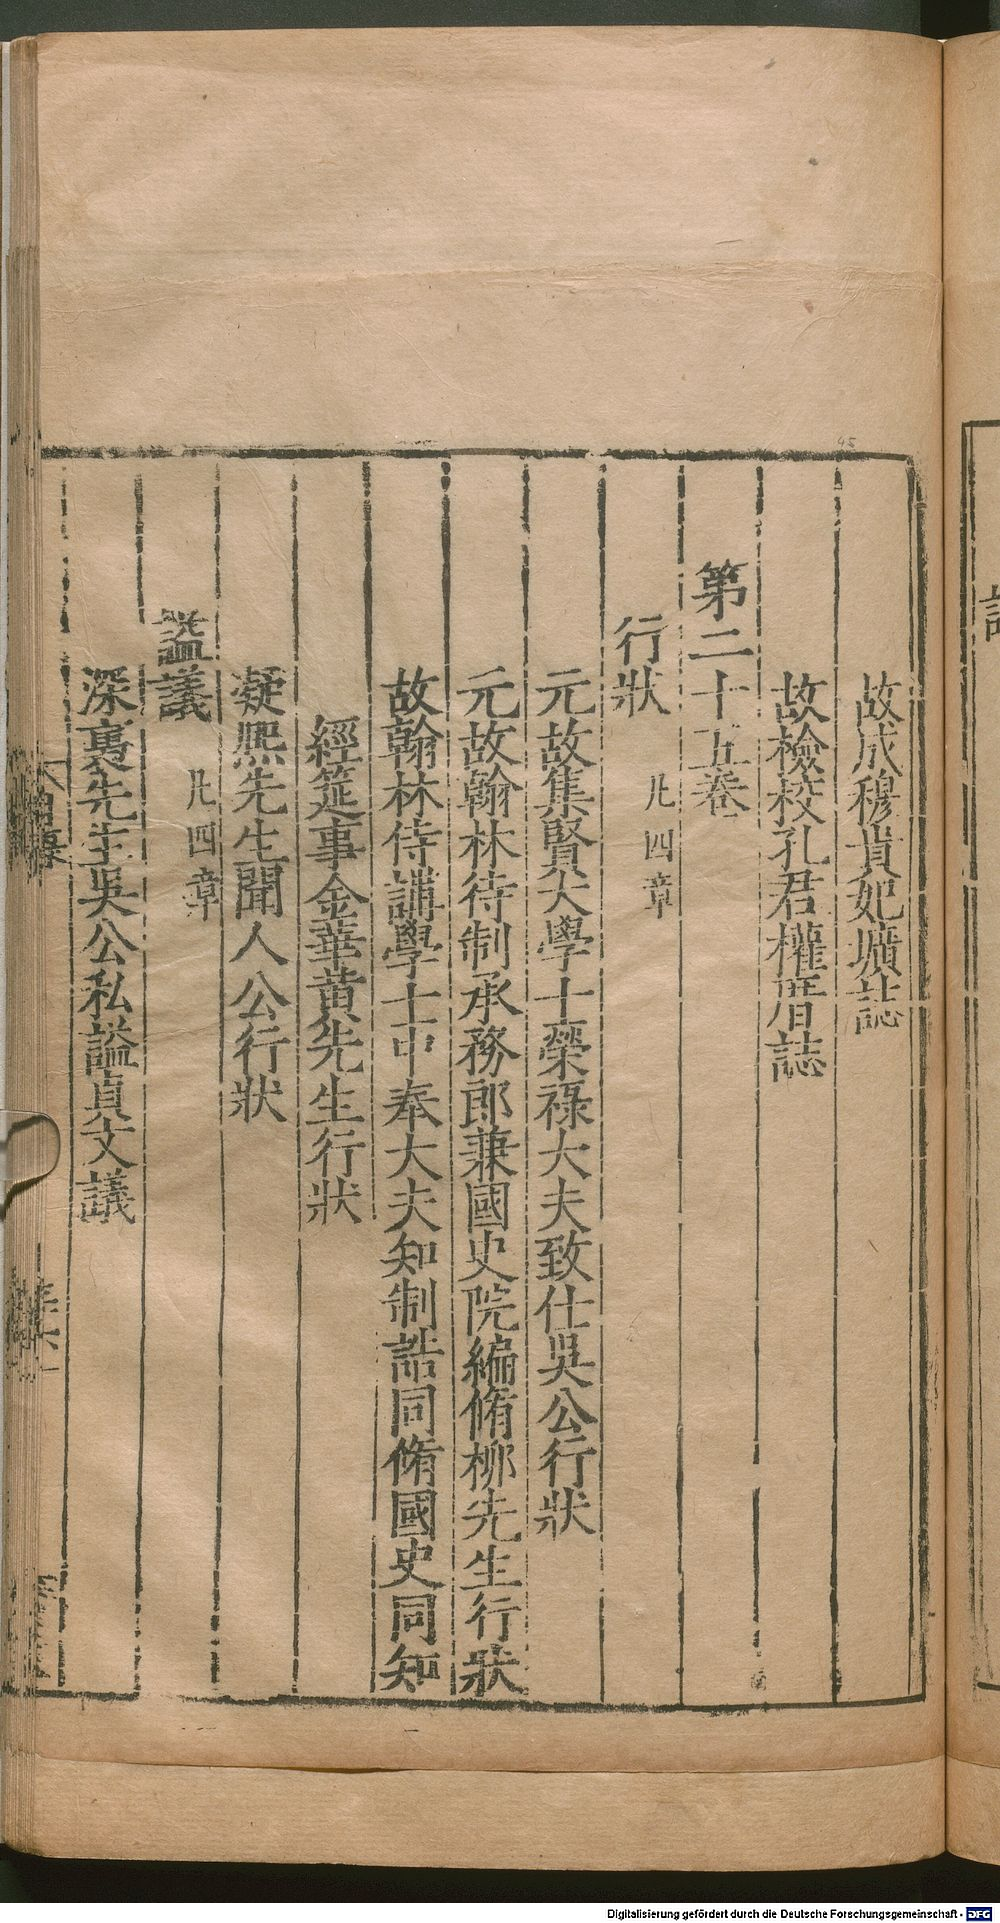 故成穆貴妃壙誌
故檢校孔君權厝誌
第二十五卷
行狀 凡四章
元故集賢大學士榮祿大夫致仕吳公行狀
元故翰林待制承務郎兼國史院編脩柳先生行狀
故翰林侍講學士中奉大夫知制誥同脩國史同知
經筵事金華黃先生行狀
凝熈先生聞人公行狀
謚議 凡四章
深裏先生吳公私謚貞文議
45
Digitalisierung gefördert durch die Deutsche Forschungsgemeinschaft - DFG